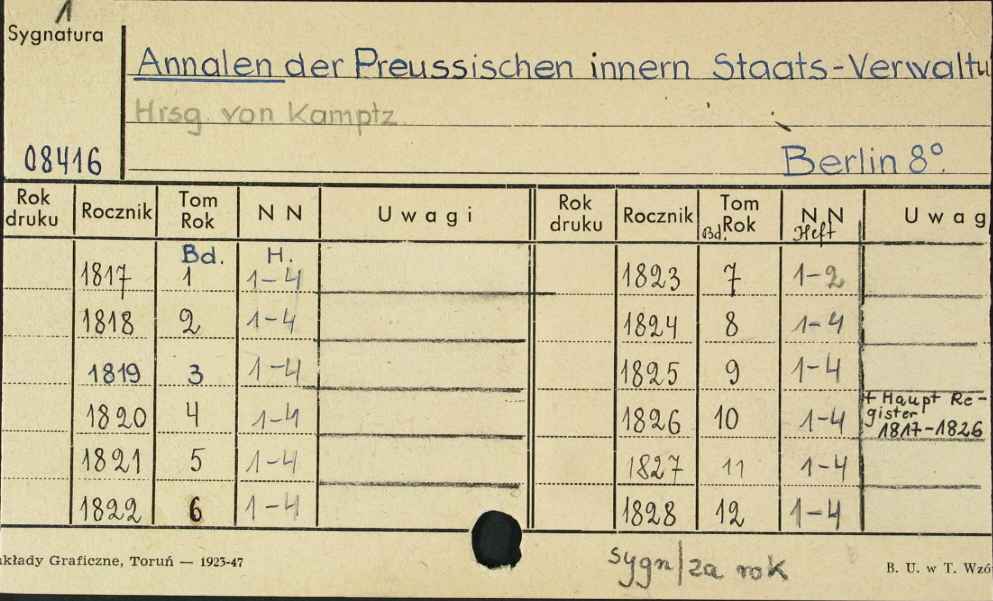 1
Sygnatura
Annalen der Preussischen innern Staats-Verwaltu
Hrsg. von Kamptz
08416
Berlin 8°.
Rok druku Rocznik Tom Rok N N Uwagi Rok druku Rocznik Tom Bd. Rok N N Heft Uwag
Bd. H.
1817 1 1-4 1823 7 1-2
1818 2 1-4 1824 8 1-4
1819 3 1-4 1825 9 1-4
1820 4 1-4 1826 10 1-4 + Haupt Re-
gister
1817-1826
1821 5 1-4 1827 11 1-4
1822 6 1-4 1828 12 1-4
kłady Graficzne, Toruń — 1923-47
sygn/za rok
B. U. w T. Wzó